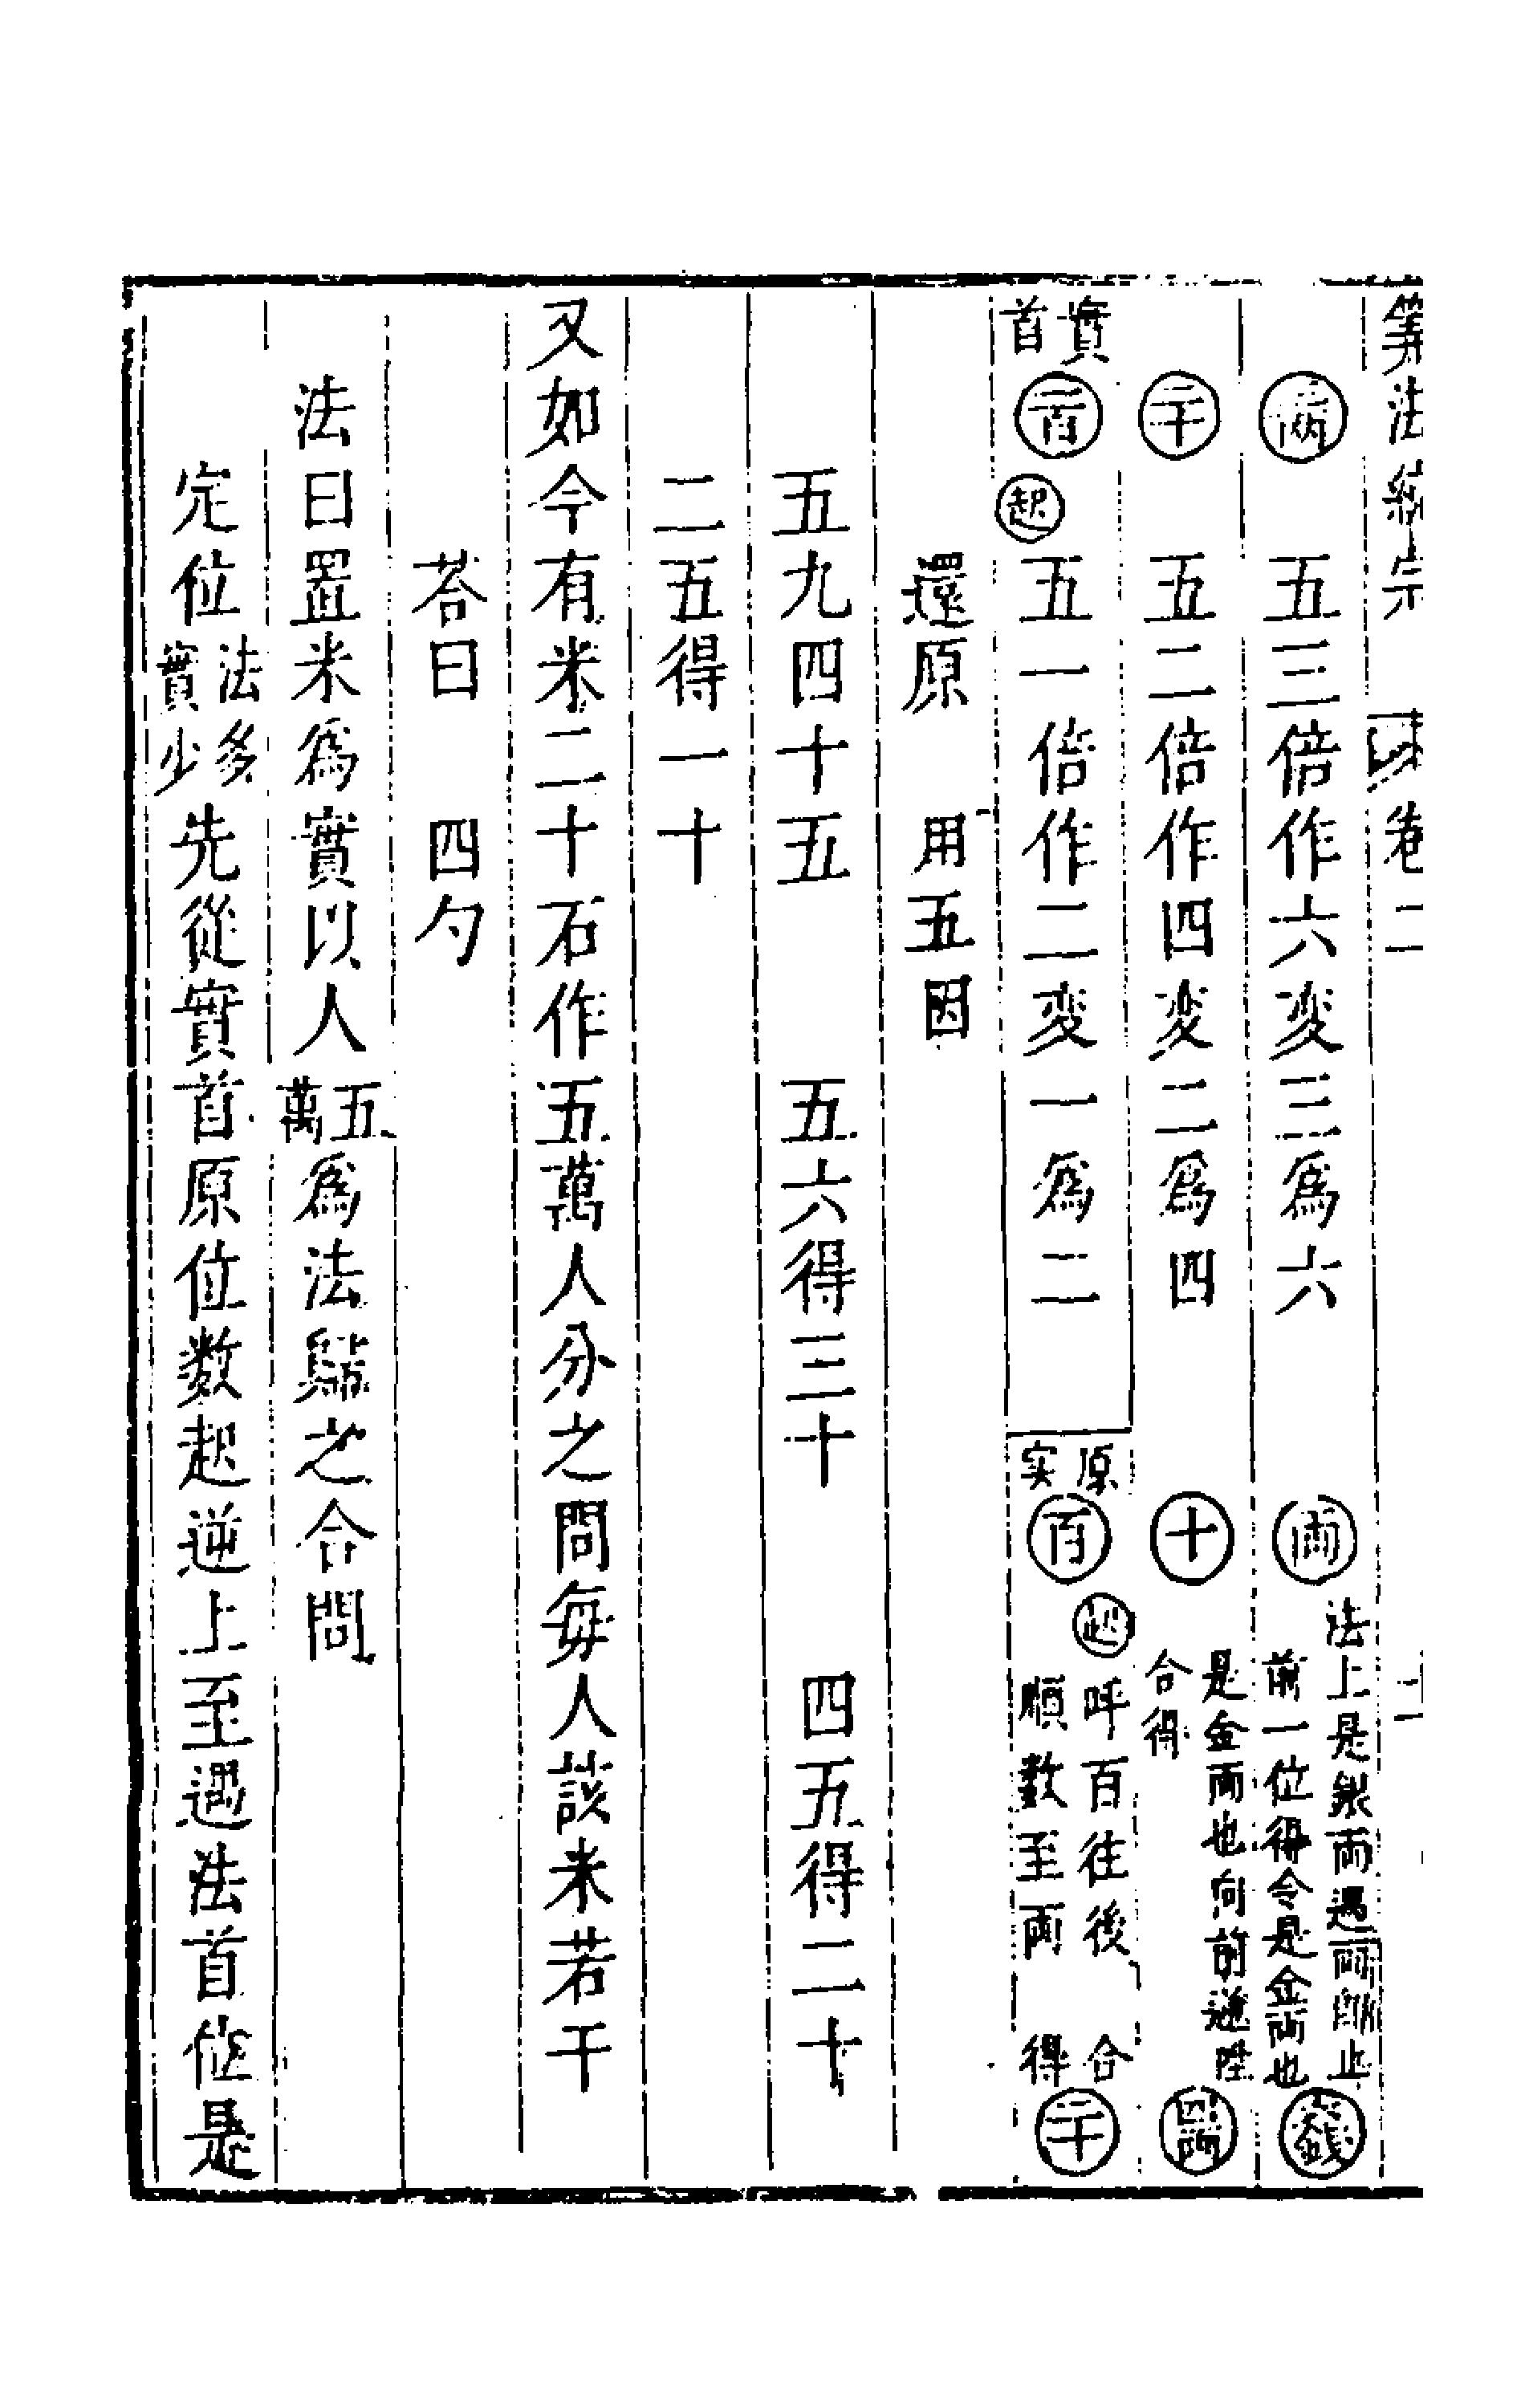 筭法統宗 卷二
三兩 五三倍作六変三爲六 兩 法上是銀兩遇兩即止前一位得令是金兩也 六錢
二十 五二倍作四変二爲四 十 是金兩也向前逆陞合得 四兩
實首 一百 起 五一倍作二変一爲二 原实 百 起 呼百往後順數至兩 合得 二十
還原 用五因
五九四十五 五六得三十 四五得二十
二五得一十
又如今有米二十石作五萬人分之問每人該米若干
荅曰 四勺
法曰置米爲實以人五萬爲法歸之合問
定位法多實少先從實首原位数起逆上至遇法首位是